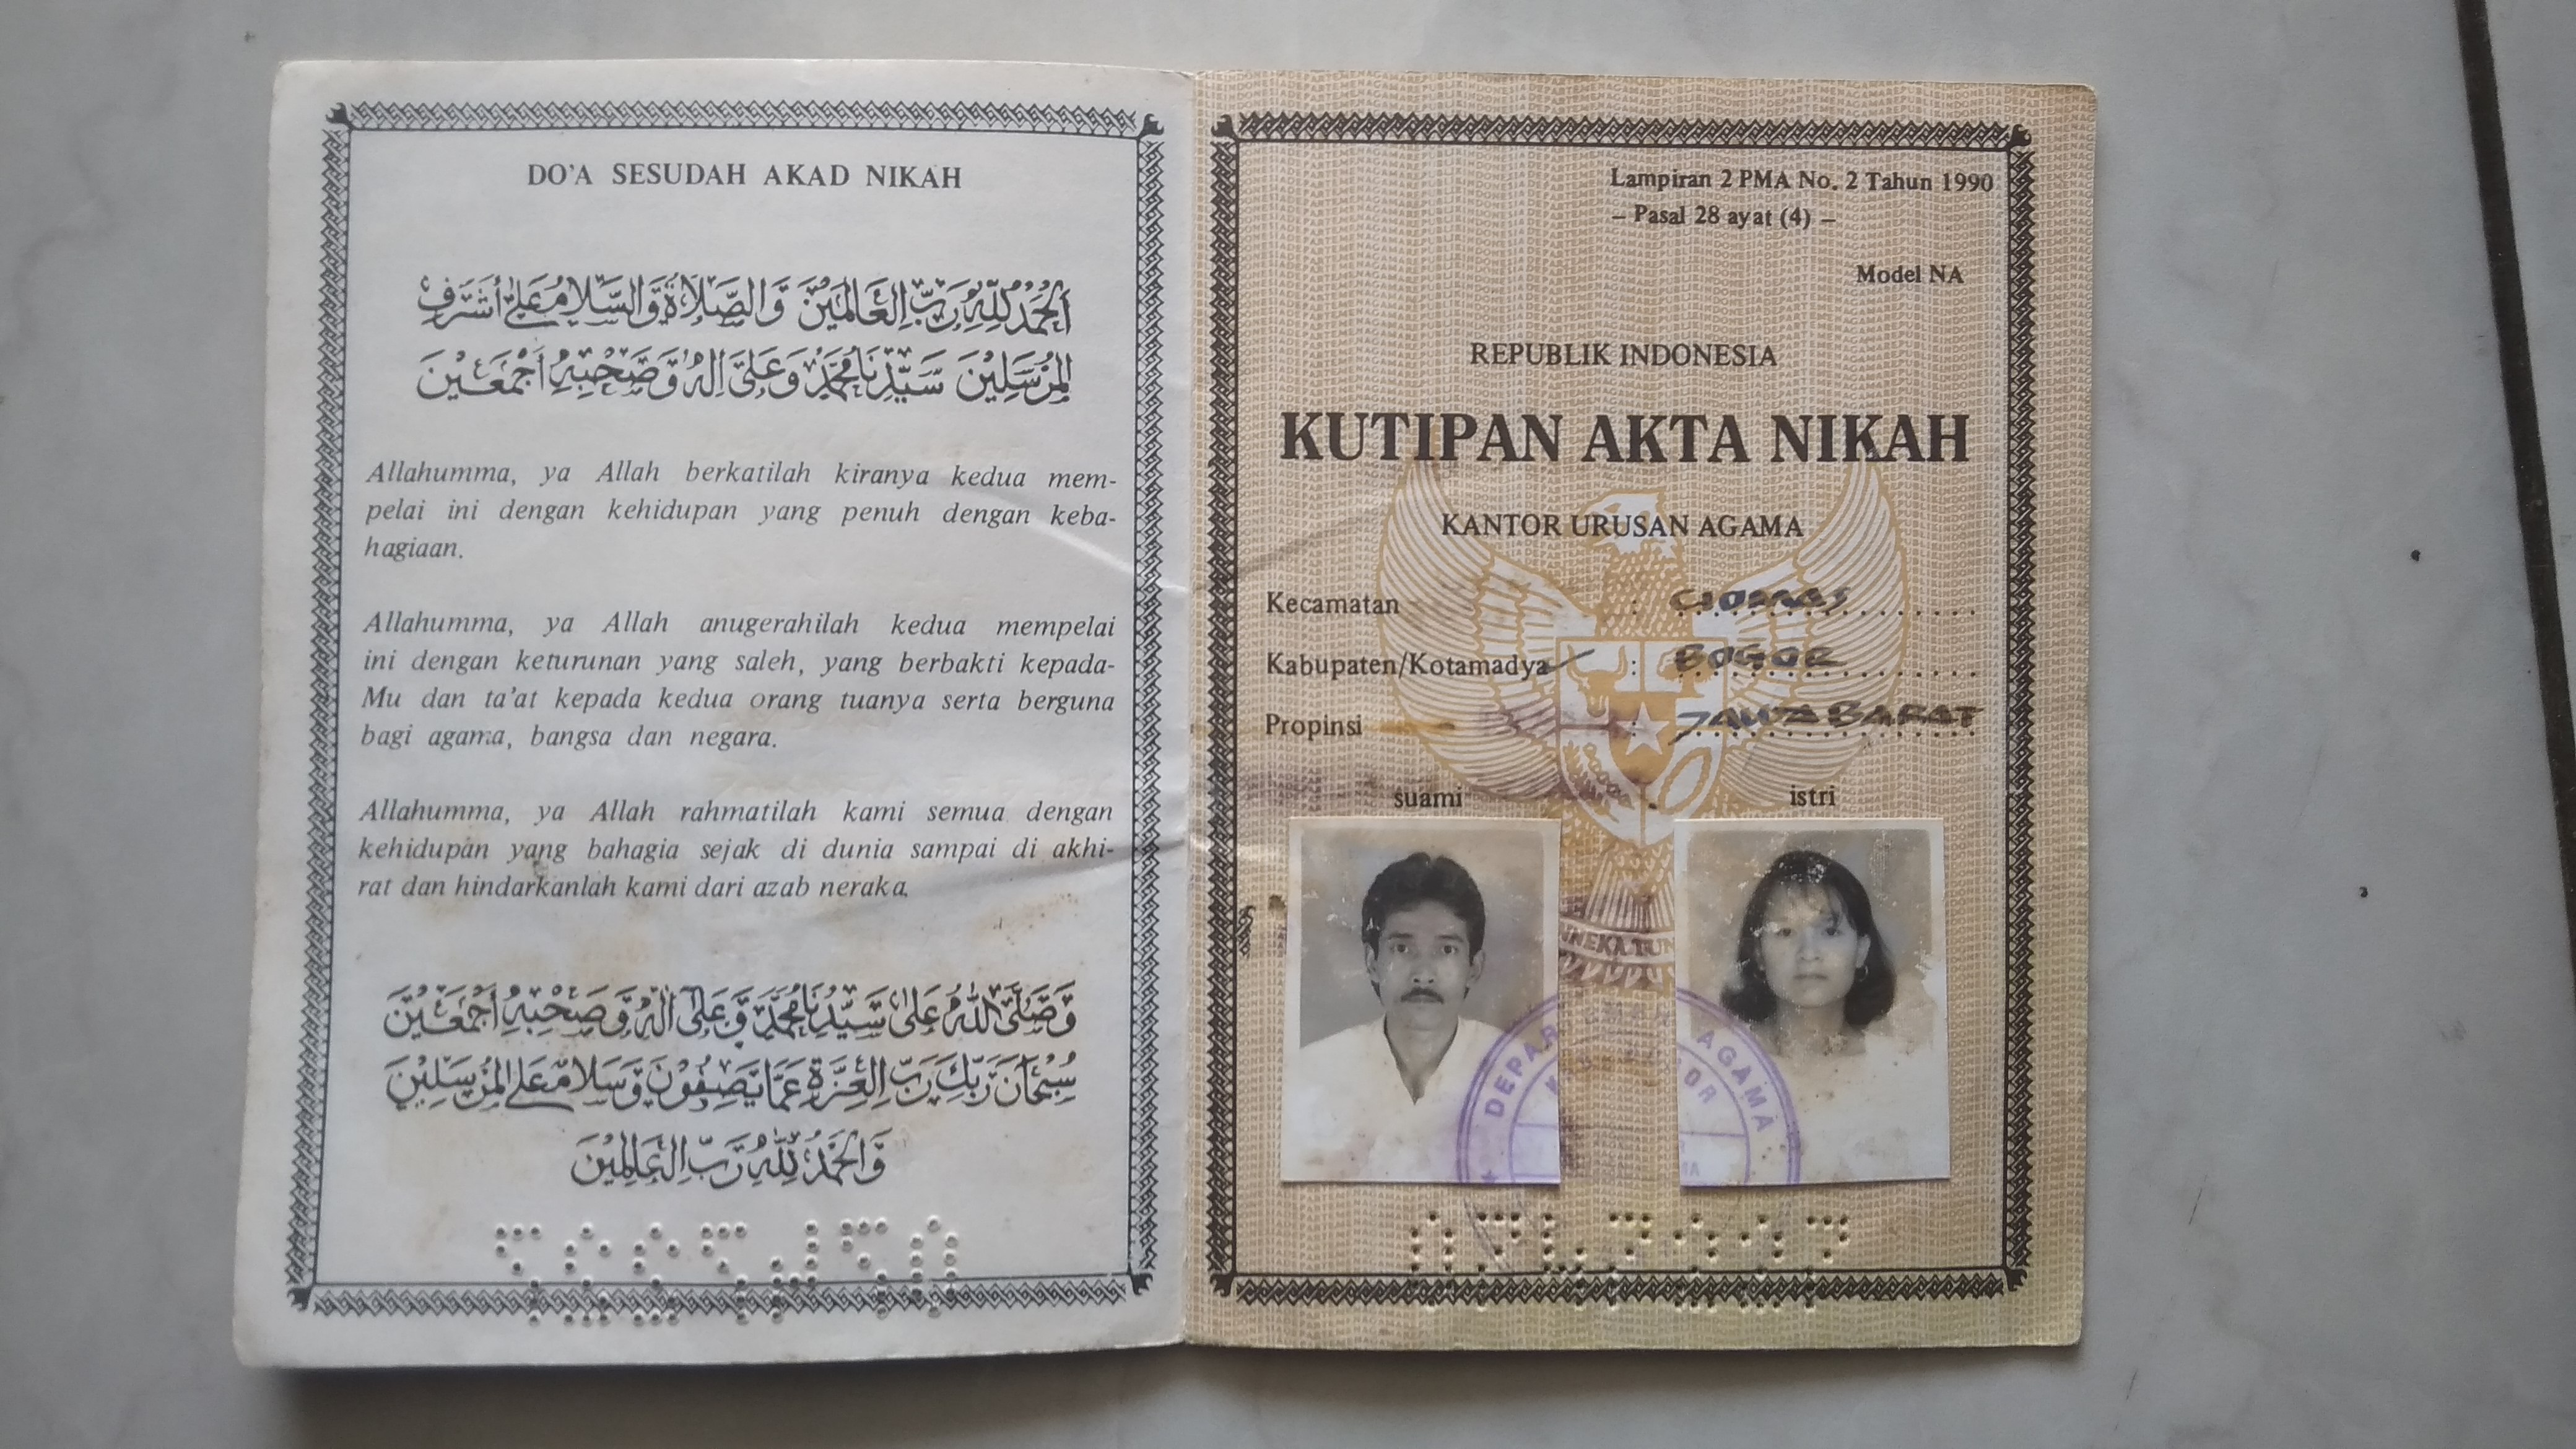 DO'A SESUDAH AKAD NIKAH
اَلْحَمْدُ لِلّٰهِ رَبِّ الْعَالَمِيْنَ وَالصَّلَاةُ وَالسَّلَامُ عَلٰى أَشْرَفِ
الْمُرْسَلِيْنَ سَيِّدِنَا مُحَمَّدٍ وَعَلٰى اٰلِهِ وَصَحْبِهِ أَجْمَعِيْنَ
Allahumma, ya Allah berkatilah kiranya kedua mem-
pelai ini dengan kehidupan yang penuh dengan keba-
hagiaan.
Allahumma, ya Allah anugerahilah kedua mempelai
ini dengan keturunan yang saleh, yang berbakti kepada-
Mu dan ta'at kepada kedua orang tuanya serta berguna
bagi agama, bangsa dan negara.
Allahumma, ya Allah rahmatilah kami semua dengan
kehidupan yang bahagia sejak di dunia sampai di akhi-
rat dan hindarkanlah kami dari azab neraka.
وَصَلَّى اللّٰهُ عَلٰى سَيِّدِنَا مُحَمَّدٍ وَعَلٰى اٰلِهِ وَصَحْبِهِ أَجْمَعِيْنَ
سُبْحَانَ رَبِّكَ رَبِّ الْعِزَّةِ عَمَّا يَصِفُوْنَ وَسَلَامٌ عَلَى الْمُرْسَلِيْنَ
وَالْحَمْدُ لِلّٰهِ رَبِّ الْعَالَمِيْنَ
Lampiran 2 PMA No. 2 Tahun 1990
– Pasal 28 ayat (4) –
Model NA
REPUBLIK INDONESIA
KUTIPAN AKTA NIKAH
KANTOR URUSAN AGAMA
Kecamatan : CIOMAS
Kabupaten/Kotamadya : BOGOR
Propinsi : JAWA BARAT
suami istri
DEPAR AGAMA